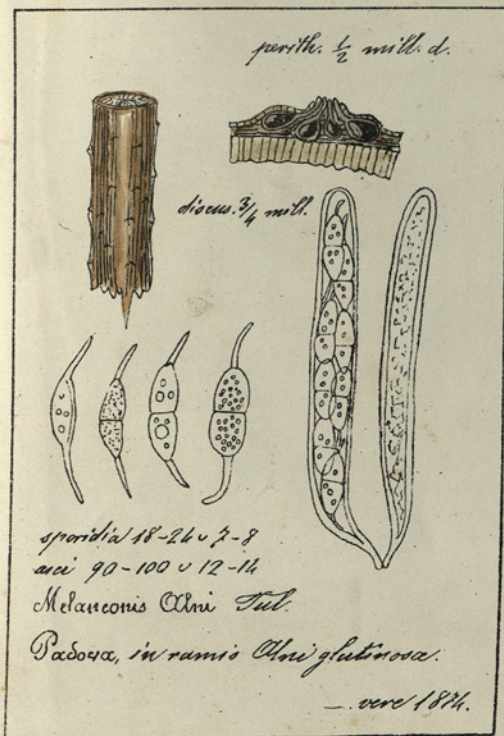 perith. ½ mill. d.
discus. ¾ mill.
sporidia 18-24 v 7-8
asci 90-100 v 12-14
Melanconis Alni Tul.
Padova, in ramis Alni glutinosa.
— vere 1874.